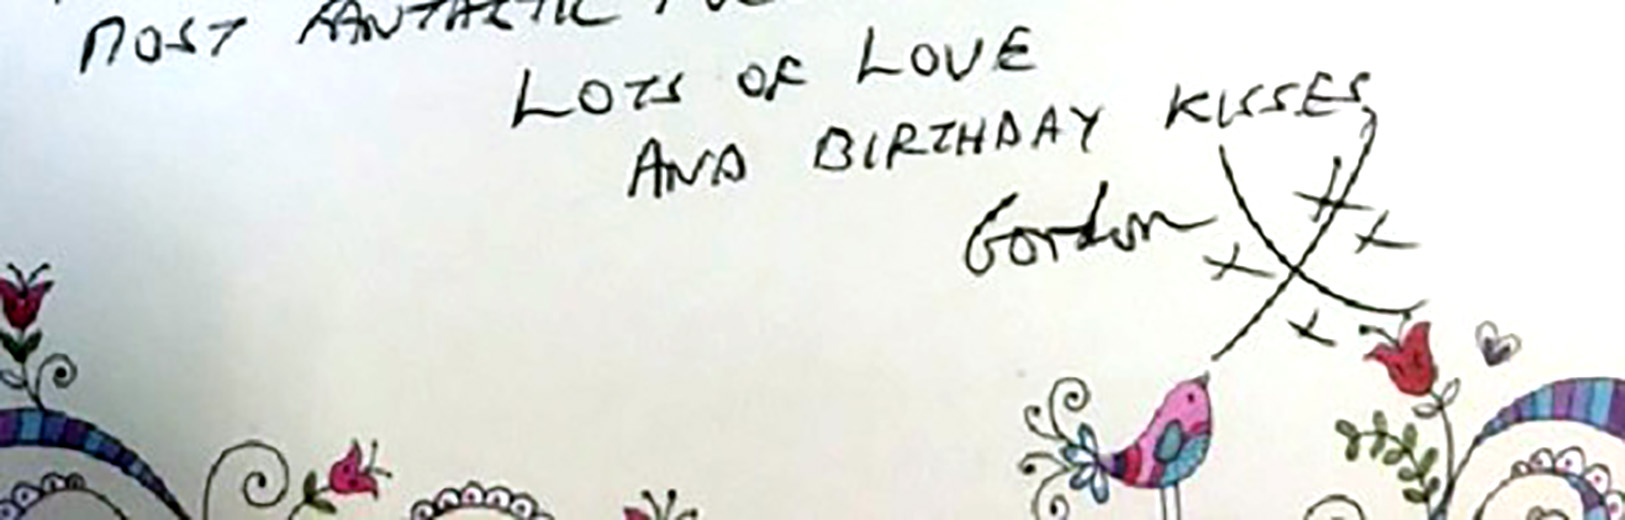 MOST FANTASTIC
LOTS OF LOVE
AND BIRTHDAY KISSES
Gordon X X X X X